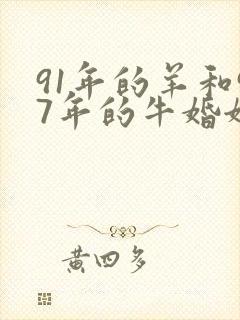 91年的羊和9
7年的牛婚姻
黄四多